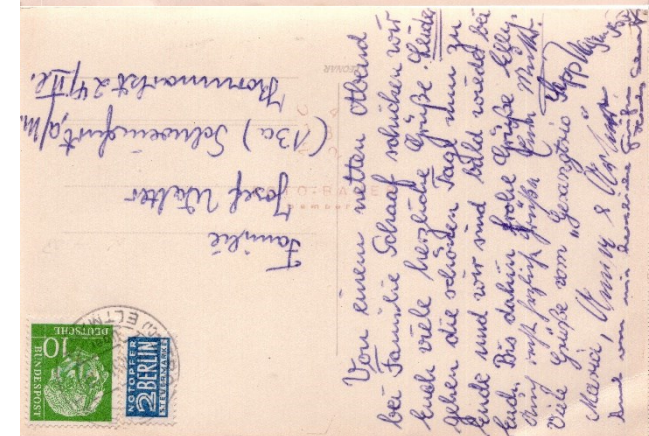 Von einem netten Abend
bei Familie Schaaf schicken wir
Euch viele herzliche Grüße. Leider
gehen die schönen Tage nun zu
Ende und wir sind bald wieder bei
Euch. Bis dahin frohe Grüße Elly.
Auch recht herzliche Grüße
Viele Grüße vom "Gesangtrio"
Maria,
und von mir
Familie
Josef Walter
(13a) Schweinfurt, a/M.
Kornmarkt 24/III.
FOTO-BAUER
Bamberg
ELTM
10
DEUTSCHE
BUNDESPOST
NOTOPFER
2 BERLIN
STEUERMARKE